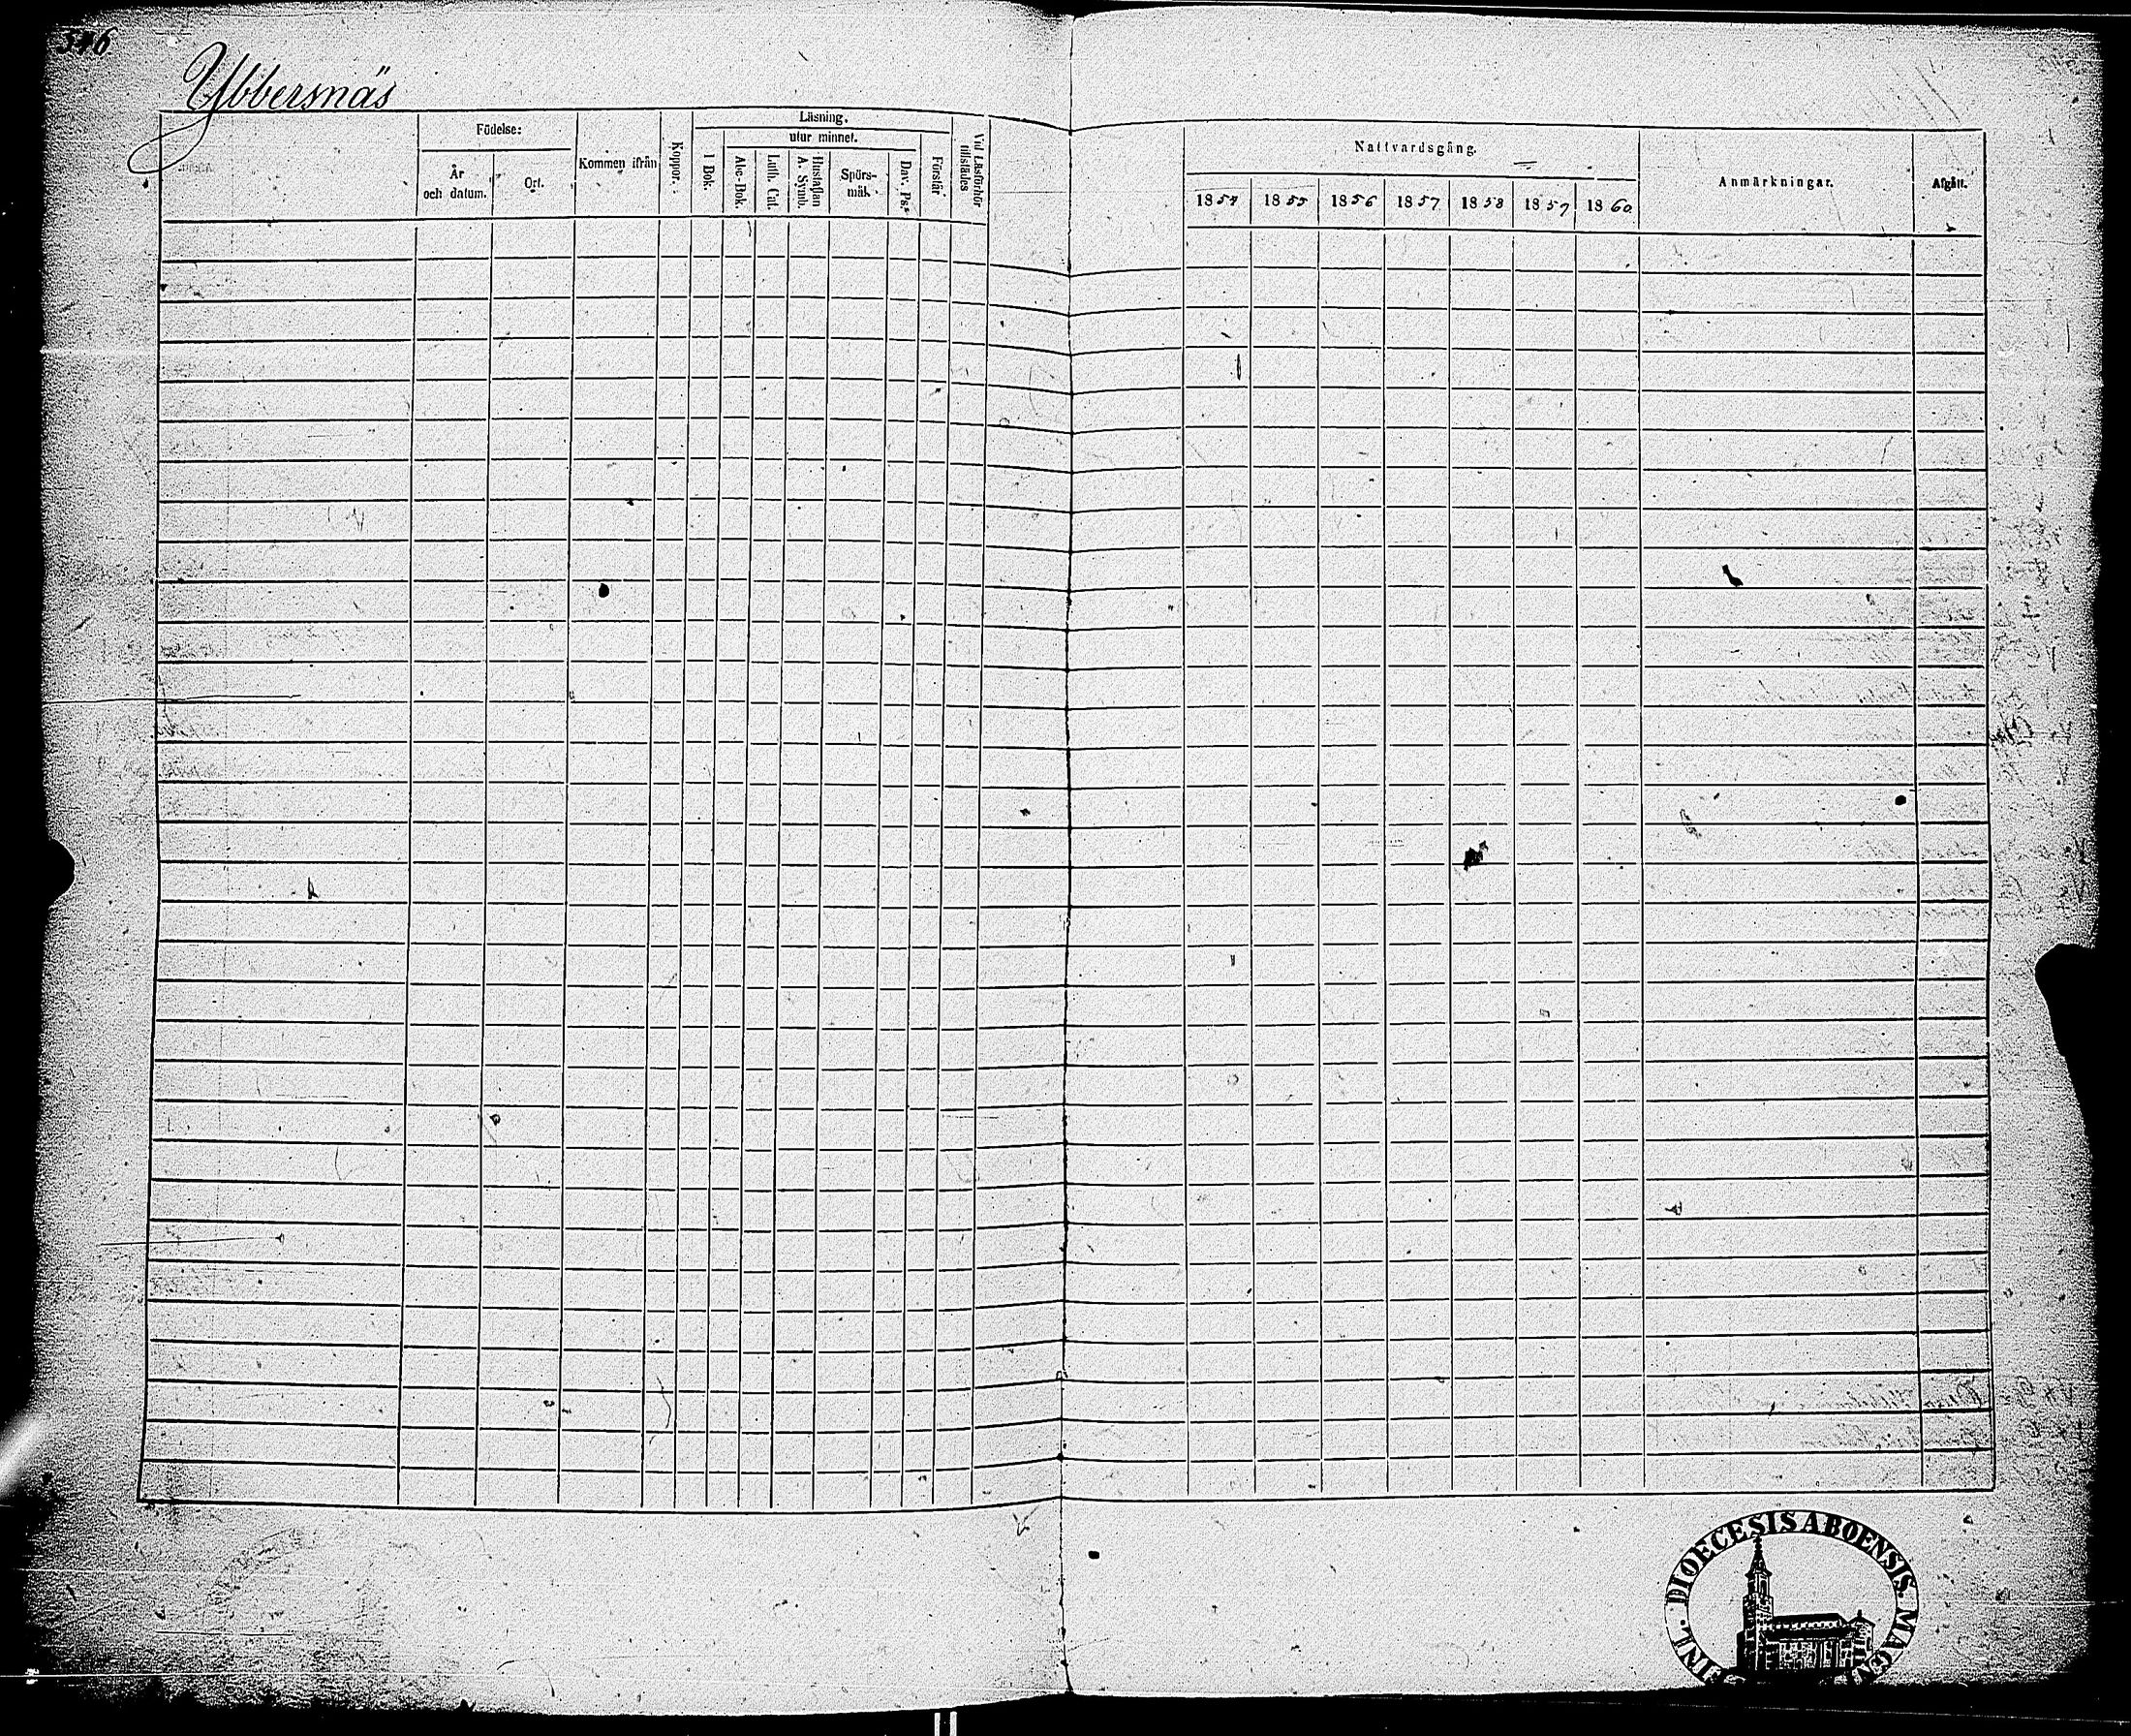 Ybbersnäs
Födelse:
År
och datum.
Ort.
Kommen ifrån
Koppor.
Läsning.
utur minnet.
I Bok.
Abc-Bok.
Luth. Cat.
Hustaflan
A. Symb.
Spörs-
mål.
Dav. Ps.
Förstår
Vid Läsförhör
tillstädes
Nattvardsgång.
1854 1855 1856 1857 1858 1859 1860
Anmärkningar.
Afgått.
DIOECESIS ABOENSIS